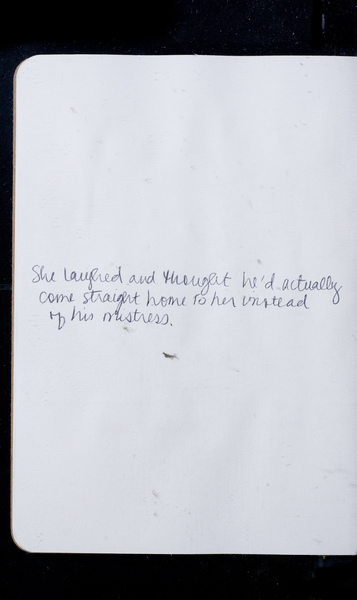 She laughed and thought he'd actually
come straight home to her instead
of his mistress.